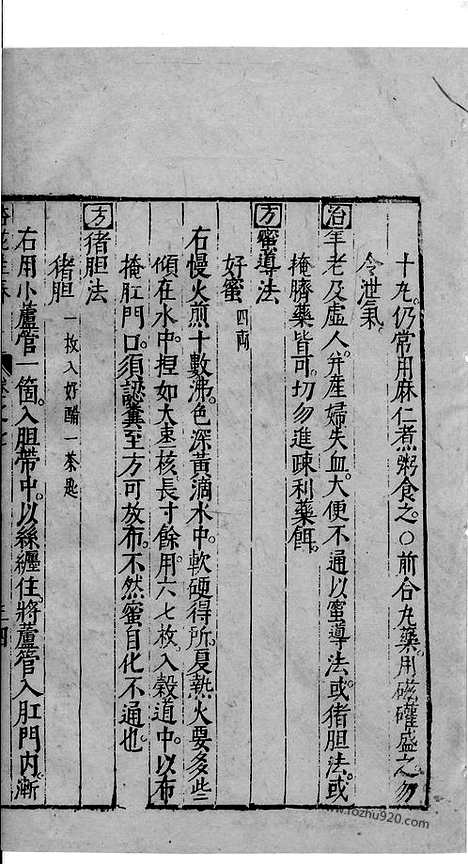 十丸仍常用麻仁煮粥食之〇前合丸藥用磁礶盛之勿
令泄氣
治年老及虛人并産婦失血大便不通以蜜導法或猪胆法或
掩臍藥皆可切勿進疎利藥餌
方蜜導法
好蜜四兩
右慢火煎十數沸色深黃滴水中軟硬得所夏熱火要多些
傾在水中捏如大枣核長寸餘用六七枚入穀道中以布
掩肛門口須認糞至方可放布不然蜜自化不通也
方猪胆法
猪胆一枚入好醋一茶匙
右用小蘆管一箇入胆帶中以絲纏住將蘆管入肛門內漸
www.fozhu920.com